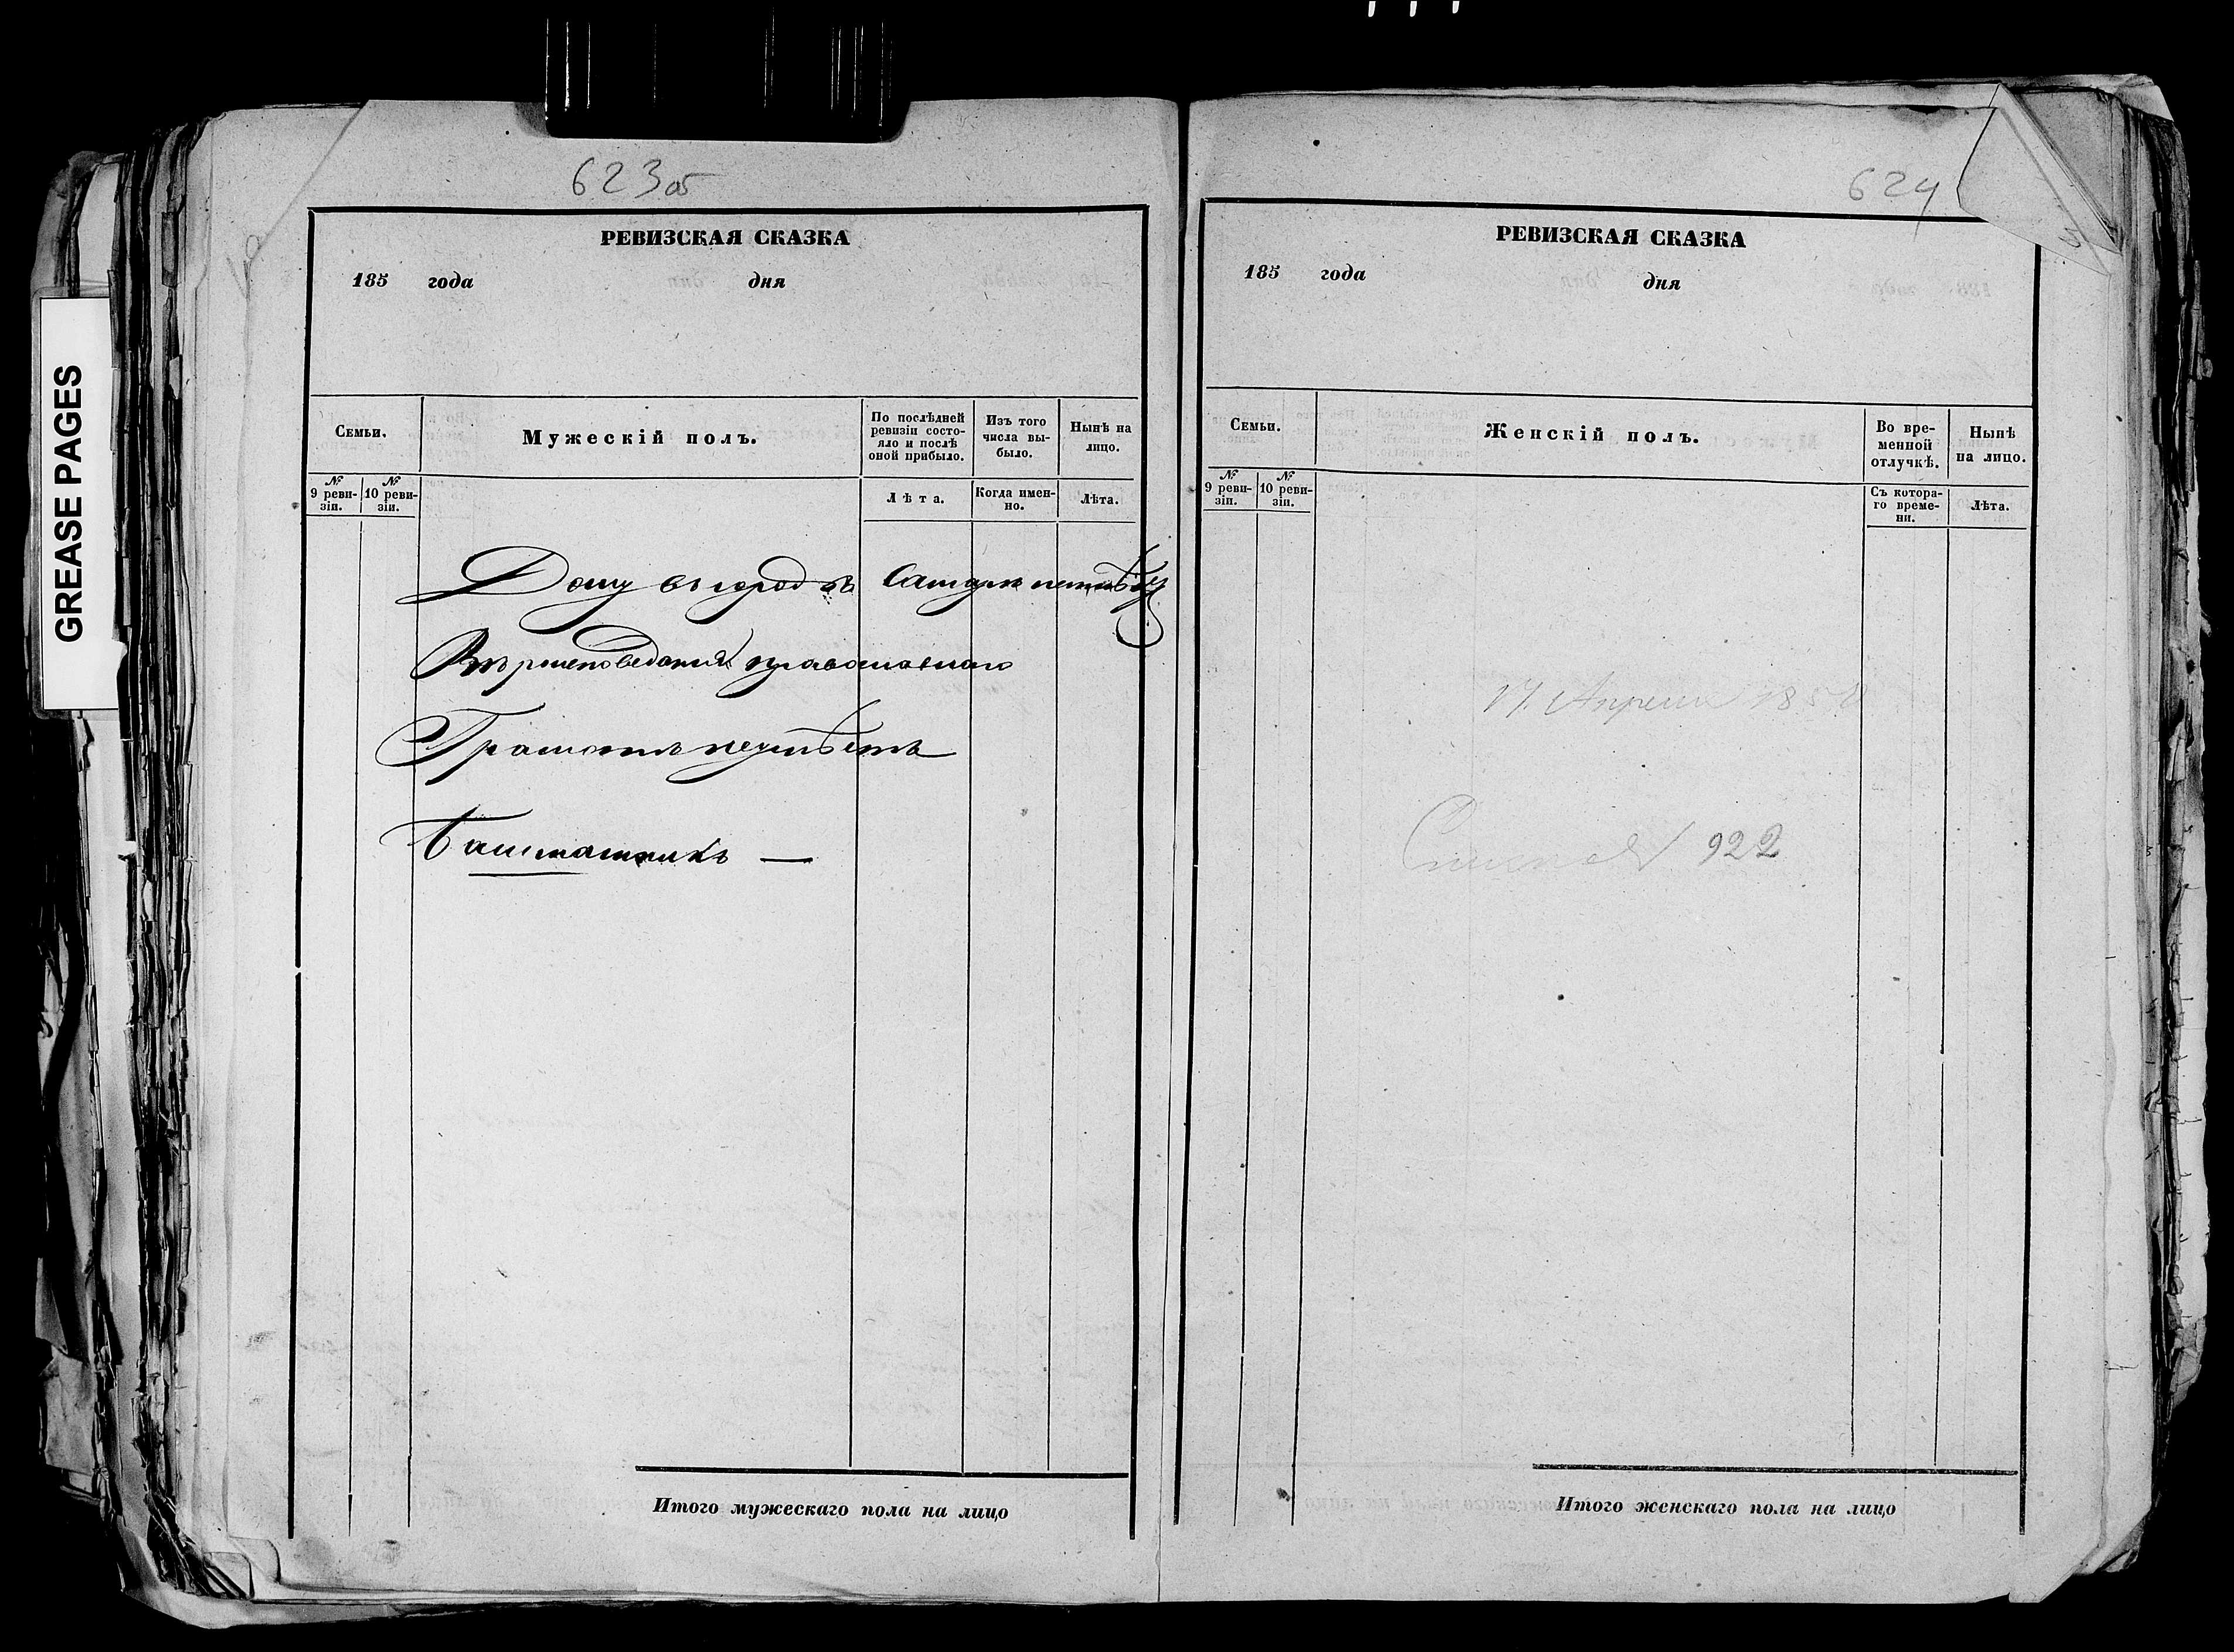 GREASE PAGES
623 об
РЕВИЗСКАЯ СКАЗКА
185 года дня
Семьи.
Мужескій полъ.
По послѣдней ревизіи состояло и послѣ оной прибыло.
Изъ того числа выбыло.
Нынѣ на лицо.
№ 9 ревизіи.
№ 10 ревизіи.
Лѣта.
Когда именно.
Лѣта.
Дому въ городѣ
Вѣроисповеданія православнаго
Грамотѣ неумѣетъ
Башмашникъ —
Итого мужескаго пола на лицо
624
РЕВИЗСКАЯ СКАЗКА
185 года дня
Семьи.
Женскій полъ.
Во временной отлучкѣ.
Нынѣ на лицо.
№ 9 ревизіи.
№ 10 ревизіи.
Съ котораго времени.
Лѣта.
17 Апреля 1858
922
Итого женскаго пола на лицо